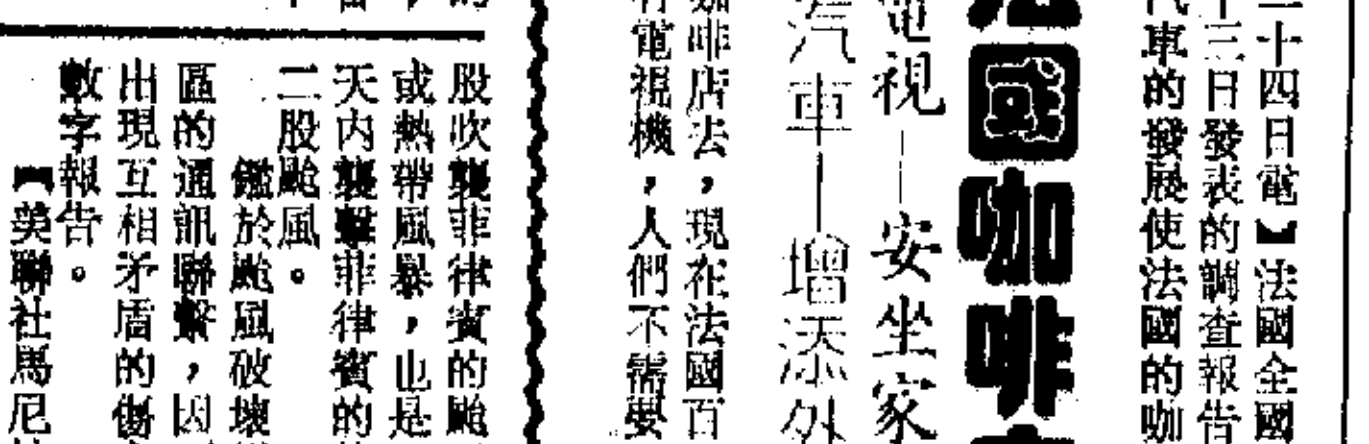 二十四日電】法國全國
十三日發表的調查報告
汽車的發展使法國的咖
國咖啡
電視—安坐家
汽車—增添外
咖啡店去,現在法國百
有電視機,人們不需要
的
股吹襲菲律賓的颱
或熱帶風暴,也是
天內襲擊菲律賓的
二股颱風。
鑑於颱風破壞
區的通訊聯繫,因
出現互相矛盾的傷
數字報告。
【美聯社馬尼